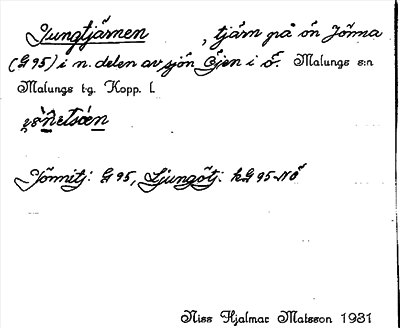 Jungtjärnen , tjärn på ön Jönna
(G 95) i n. delen av sjön Öjen i ö. Malungs s:n
Malungs t-g. Kopp. l.
Jönnitj: G 95, Ljungötj: kG 95 NÖ
Niss Hjalmar Matsson 1931